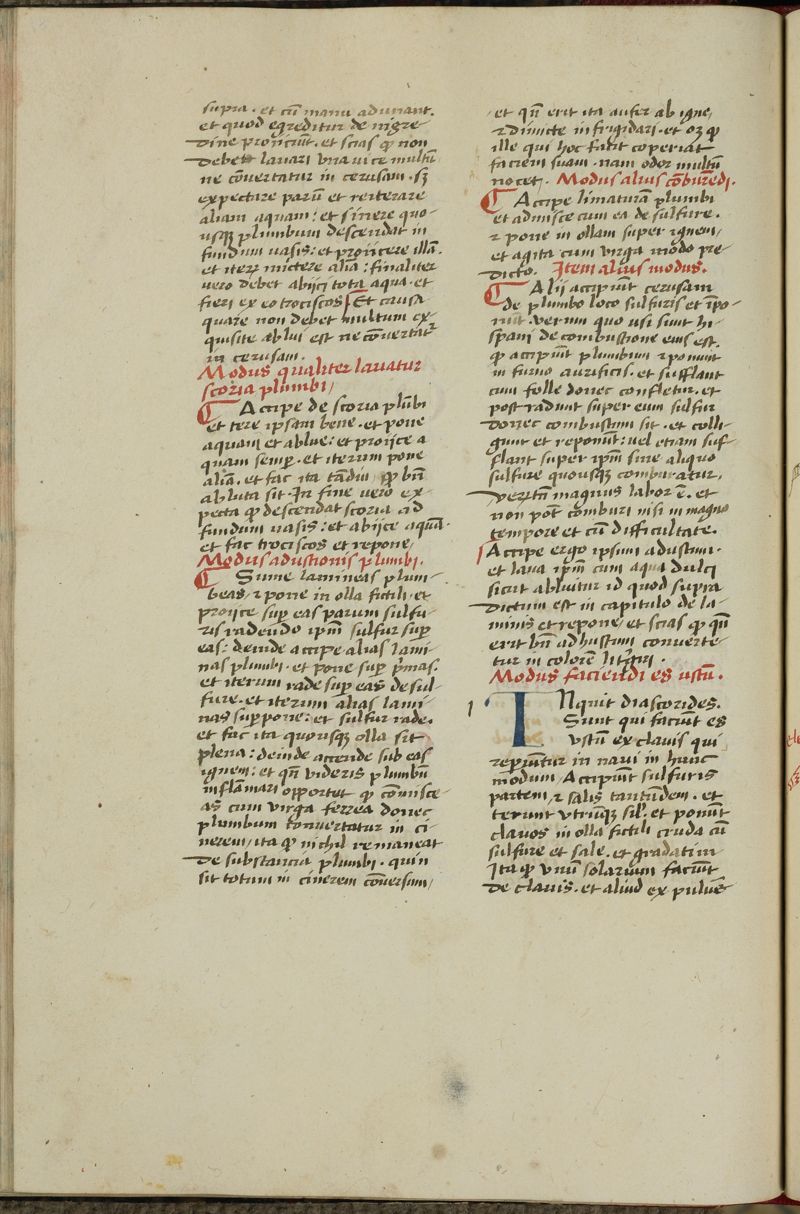 supra · et cū manu adunant.
et quod egreditur de nigre
dine proijciūt · et scias qꝫ non
debet lauari una uice multū
ne cōuertatur in cerusam · sꝫ
expectare parū et reiterare
aliam aquam : et sinere quo-
usqꝫ plumbum descendat in
fundum uasis : et proijcere illā.
et iterꝝ mictere aliā : finaliter
uero debet abijci tota aqua · et
fieri ex eo trociscos Et causa
quare non debet multum ex-
quisite ablui est ne cōuertat᷒
in cerusam .
Modus qualiter lauatur
scoria plumbi /
Accipe de scoria plūbi
et tere ipsam bene · et pone
aquam et ablue : et proijce a
quam semp̄ · et iterum pone
aliā . et fac ita tādiu qꝫ bn̄
abluta sit · In fine uero ex
pecta qꝫ descendat scoria ad
fundum uasis : et abijce aquā ·
et fac trociscos et repone /
Modus adustionis plumbi .
Sume lamineas plum-
beas · ⁊ pone in olla fictili · et
proijce sup̄ eas parum sulfu-
ris radendo ipm̄ sulfur sup̄
eas : deinde accipe alias lami
nas plumbi · et pone sup̄ p̄mas.
et iterum rade sup̄ eas de sul-
fure · et iterum alias lami
nas suppone : et sulfur rade.
et fac ita quousqꝫ olla sit
plena : deinde accende sub eas
ignem : et qn̄ uideris plumbū
inflamari opportet qꝫ cōmisce
as cum virga ferrea donec
plumbum conuertatur in ci-
nerem / ita qꝫ nichil remaneat
de substancia plumbi · quin
sit totum in cinerem cōuersum /
et qn̄ erit ita aufer ab igne /
⁊ dimicte infrigidari · et oꝫ qꝫ
ille qui hoc facit coperiat
faciem suam · nam odor multū
nocet . Modus alius cōburēdi .
Accipe limaturam plumbi
et admisce cum ea de sulfure .
⁊ pone in ollam super ignem /
et agita cum virga modo pre
dicto . Item alius modus .
Alij accipiūt cerusam
de plumbo loco sulfuris et īpo-
nūt · verum quo usi sunt hi-
spani de combustione eius est .
qꝫ accipiūt plumbum ⁊ ponunt
in furno aurificis · et sufflant
cum folle donec confletur · et
post radunt super eum sulfur
donec combustum sit · et colli-
gunt et reponūt : uel etiam suf-
flant super ipm̄ sine aliquo
sulfure quousqꝫ comburatur /
verūtn̄ magnus labor ē . et
non pōt comburi nisi in magno
tempore et cū difficultate .
Accipe ergo ipsum adustum ·
et laua ipm̄ cum aqua dulci
sicut abluitur id quod supra
dictum est in capitulo de la-
minis et repone / et scias qꝫ qn̄
erit bn̄ adhustum conuerte-
tur in colorē
Modus faciendi es ustū .
Inquit diascorides.
Sunt qui faciūt es
vstū ex clauis qui
repiūntur in naui in hunc
modum Accipiūt sulfuris
partem / ⁊ salis tantūdem · et
terunt utrūqꝫ sil̄ . et ponūt
clauos in olla fictili cruda cū
sulfure et sale · et gradatim
Ita qꝫ vnū solarium faciūt
de clauis · et aliud ex puluē